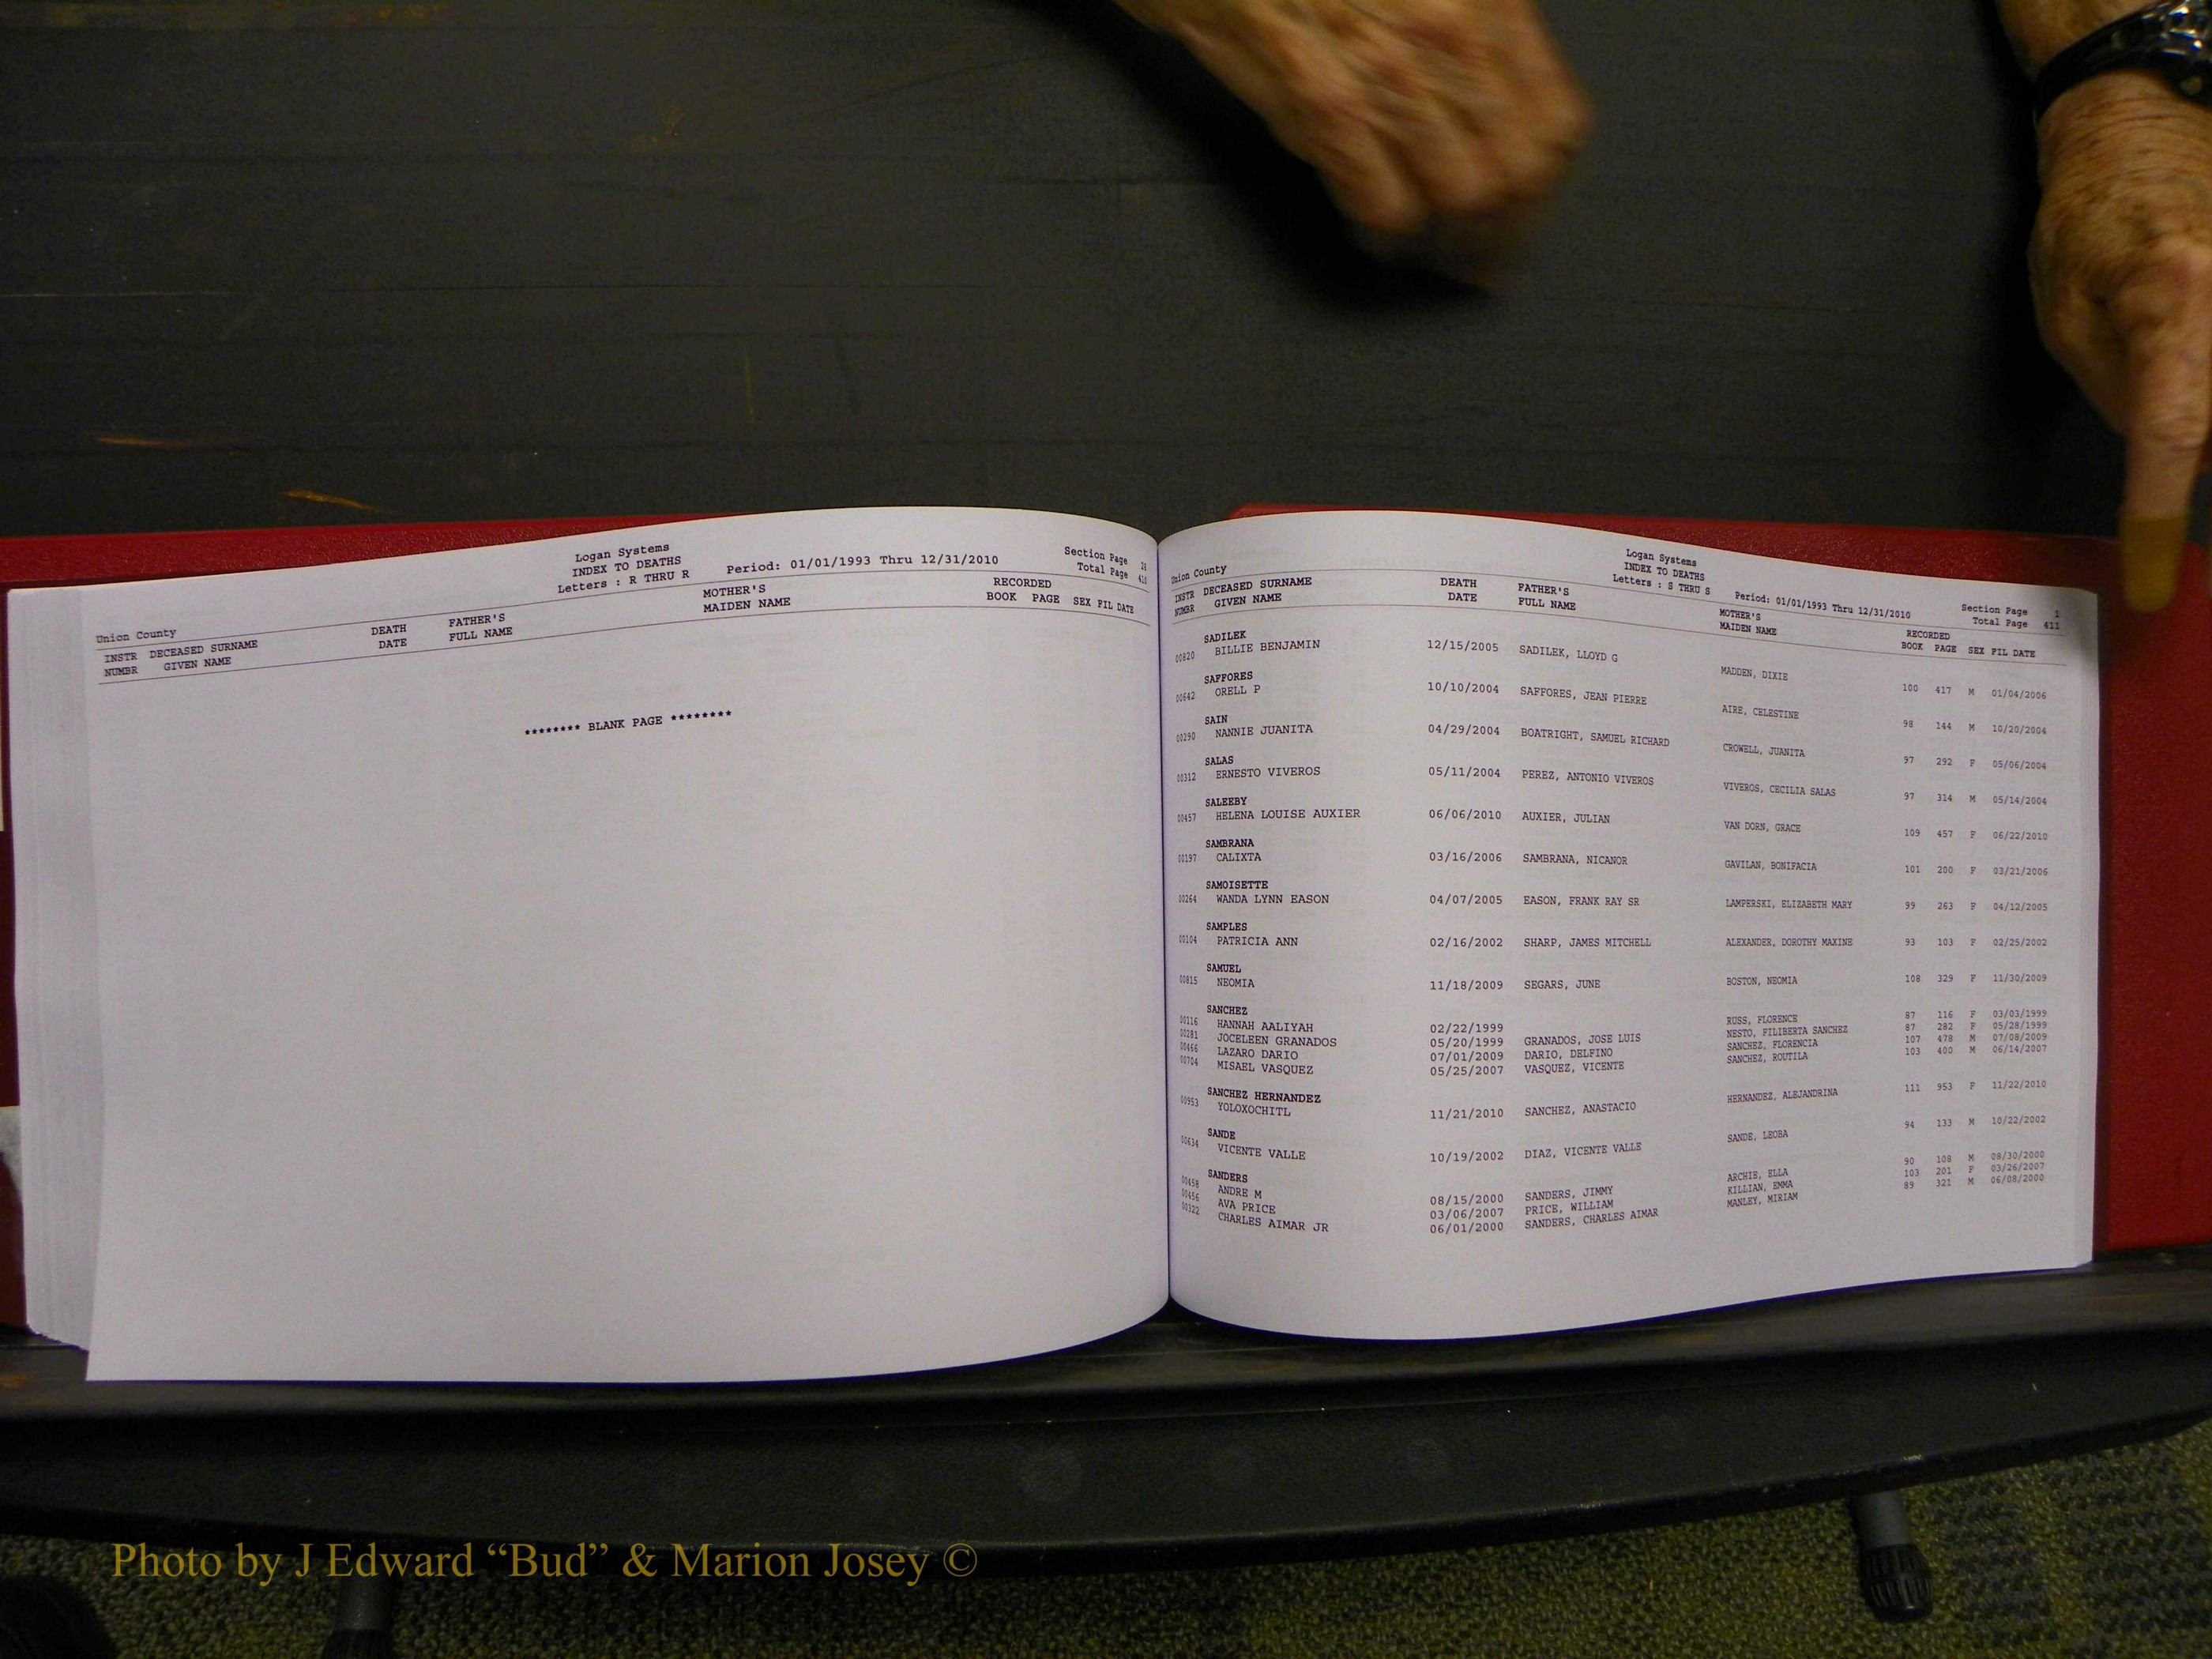 Logan Systems
INDEX TO DEATHS
Letters : R THRU R Period: 01/01/1993 Thru 12/31/2010
Section Page
Total Page 410
Union County
INSTR DECEASED SURNAME DEATH FATHER'S MOTHER'S RECORDED
NUMBR GIVEN NAME DATE FULL NAME MAIDEN NAME BOOK PAGE SEX FIL DATE
******** BLANK PAGE ********
Logan Systems
INDEX TO DEATHS
Letters : S THRU S Period: 01/01/1993 Thru 12/31/2010
Section Page 1
Total Page 411
Union County
INSTR DECEASED SURNAME DEATH FATHER'S MOTHER'S RECORDED
NUMBR GIVEN NAME DATE FULL NAME MAIDEN NAME BOOK PAGE SEX FIL DATE
SADILEK
00820 BILLIE BENJAMIN 12/15/2005 SADILEK, LLOYD G MADDEN, DIXIE 100 417 M 01/04/2006
SAFFORES
00642 ORELL P 10/10/2004 SAFFORES, JEAN PIERRE AIRE, CELESTINE 98 144 M 10/20/2004
SAIN
00290 NANNIE JUANITA 04/29/2004 BOATRIGHT, SAMUEL RICHARD CROWELL, JUANITA 97 292 F 05/06/2004
SALAS
00312 ERNESTO VIVEROS 05/11/2004 PEREZ, ANTONIO VIVEROS VIVEROS, CECILIA SALAS 97 314 M 05/14/2004
SALEEBY
00457 HELENA LOUISE AUXIER 06/06/2010 AUXIER, JULIAN VAN DORN, GRACE 109 457 F 06/22/2010
SAMBRANA
00197 CALIXTA 03/16/2006 SAMBRANA, NICANOR GAVILAN, BONIFACIA 101 200 F 03/21/2006
SAMOISETTE
00264 WANDA LYNN EASON 04/07/2005 EASON, FRANK RAY SR LAMPERSKI, ELIZABETH MARY 99 263 F 04/12/2005
SAMPLES
00104 PATRICIA ANN 02/16/2002 SHARP, JAMES MITCHELL ALEXANDER, DOROTHY MAXINE 93 103 F 02/25/2002
SAMUEL
00815 NEOMIA 11/18/2009 SEGARS, JUNE BOSTON, NEOMIA 108 329 F 11/30/2009
SANCHEZ
00116 HANNAH AALIYAH 02/22/1999 RUSS, FLORENCE 87 116 F 03/03/1999
00281 JOCELEEN GRANADOS 05/20/1999 GRANADOS, JOSE LUIS NESTO, FILIBERTA SANCHEZ 87 282 F 05/28/1999
00466 LAZARO DARIO 07/01/2009 DARIO, DELFINO SANCHEZ, FLORENCIA 107 478 M 07/08/2009
00704 MISAEL VASQUEZ 05/25/2007 VASQUEZ, VICENTE SANCHEZ, ROUTILA 103 400 M 06/14/2007
SANCHEZ HERNANDEZ
00953 YOLOXOCHITL 11/21/2010 SANCHEZ, ANASTACIO HERNANDEZ, ALEJANDRINA 111 953 F 11/22/2010
SANDE
00634 VICENTE VALLE 10/19/2002 DIAZ, VICENTE VALLE SANDE, LEOBA 94 133 M 10/22/2002
SANDERS
00458 ANDRE M 08/15/2000 SANDERS, JIMMY ARCHIE, ELLA 90 108 M 08/30/2000
00456 AVA PRICE 03/06/2007 PRICE, WILLIAM KILLIAN, EMMA 103 201 F 03/26/2007
00322 CHARLES AIMAR JR 06/01/2000 SANDERS, CHARLES AIMAR MANLEY, MIRIAM 89 321 M 06/08/2000
Photo by J Edward “Bud” & Marion Josey ©